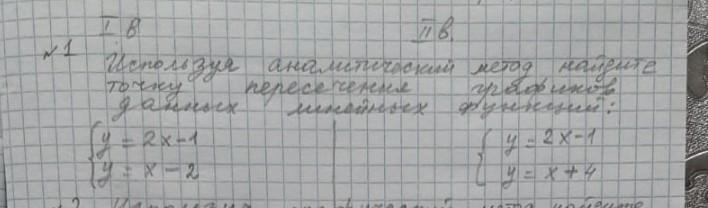 I в II в.
№1 Используя аналитический метод найдите
точку пересечения графиков
данных линейных функций:
y = 2x-1 y = 2x-1
y = x-2 y = x+4